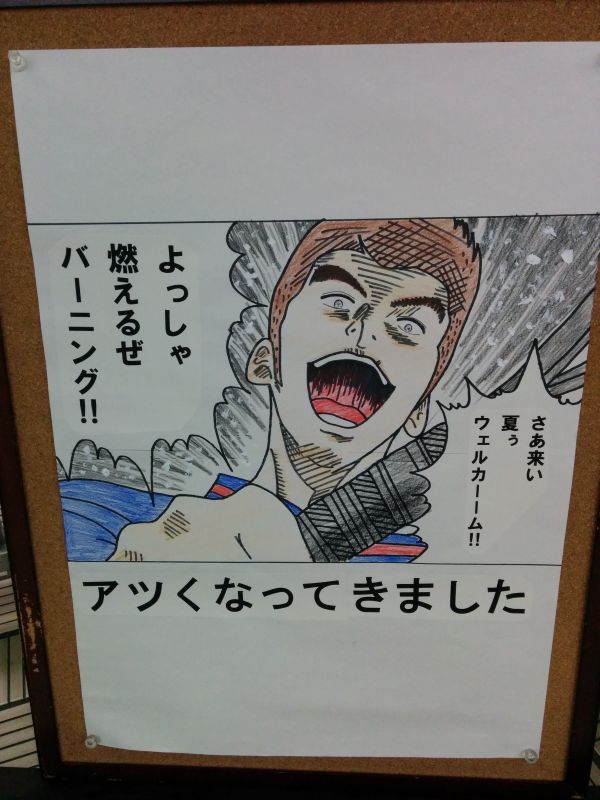 さあ来い
夏ぅ
ウェルカーーム!!
よっしゃ
燃えるぜ
バーニング!!
アツくなってきました